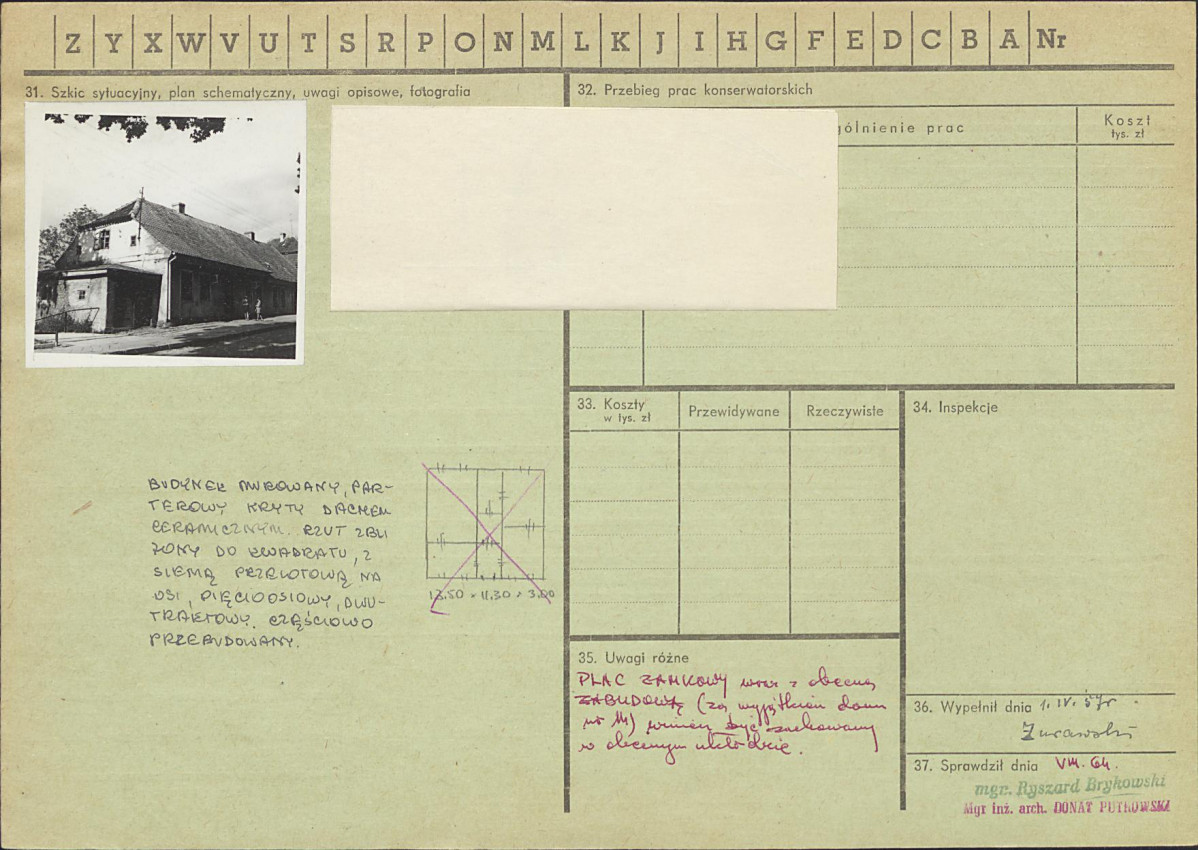 Z Y X W V U T S R P O N M L K J I H G F E D C B A Nr
31. Szkic sytuacyjny, plan schematyczny, uwagi opisowe, fotografia
32. Przebieg prac konserwatorskich
gólnienie prac
Koszt
tys. zł
33. Koszty
w tys. zł
Przewidywane
Rzeczywiste
34. Inspekcje
BUDYNEK MUROWANY, PAR-
TEROWY KRYTY DACHEM
CERAMICZNYM. RZUT ZBLI
ŻONY DO KWADRATU, Z
SIEMĄ PRZELOTOWĄ NA
OSI, PIĘCIOOSIOWY, DWU-
TRAKTOWY. CZĘŚCIOWO
PRZEBUDOWANY.
13.50 × 11.30 × 3.00
35. Uwagi różne
PLAC ZAMKOWY wraz z obecną
ZABUDOWĄ (za wyjątkiem domu
nr 11) winien być zachowany
w obecnym układzie.
36. Wypełnił dnia 1. IV. 57r.
Żurawski
37. Sprawdził dnia VIII. 64.
mgr. Ryszard Brykowski
Mgr inż. arch. DONAT PUTKOWSKI